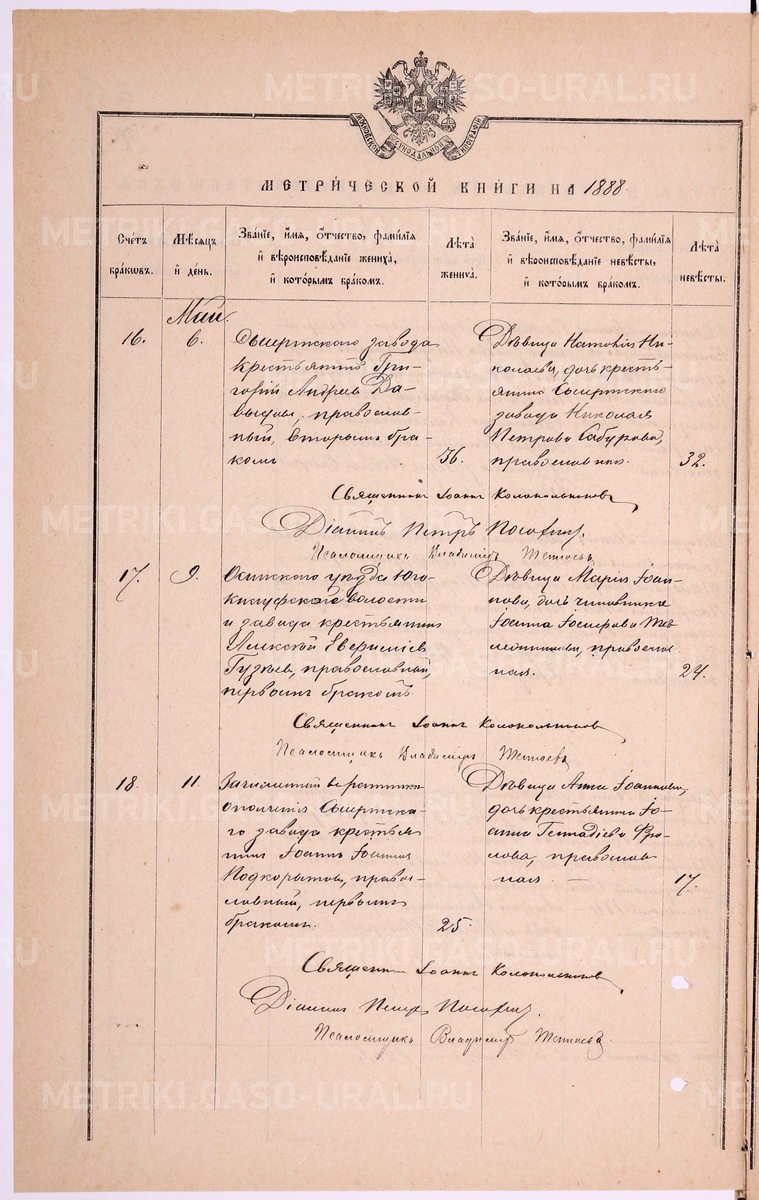 METRIKI.GASO-URAL.RU
МОСКОВСКОЙ СѴНОДАЛЬНОЙ ТИПОГРАФІИ
МЕТРИ́ЧЕСКОЙ КНИ́ГИ НА 1888.
Сче́тъ бра́кωвъ.
Мѣ́сѧцъ и҆ де́нь.
Зва́нїе, и҆́мѧ, ѻ҆́тчество, фами́лїѧ
и҆ вѣроисповѣ́данїе жениха̀,
и҆ кото́рымъ бра́комъ.
Лѣ́та жениха̀.
Зва́нїе, и҆́мѧ, ѻ҆́тчество, фами́лїѧ
и҆ вѣроисповѣ́данїе невѣ́сты,
и҆ кото́рымъ бра́комъ.
Лѣ́та невѣ́сты.
Маи
16.
6.
Сысертского завода
крестьянинъ Гри-
горій Андреев Да-
выдовъ, православ-
ный, вторымъ бра-
комъ
36.
Дѣвица Наталія Ни-
колаева, дочь кресть-
янина Сысертского
завода Николая
Петрова Сабурова,
православная.
32.
Священникъ Іоаннъ Колокольниковъ
Діаконъ Петръ
Псаломщикъ Владиміръ
17.
9.
Осинского уѣзда Юго-
кнауфской волости
и завода крестьянинъ
Алексѣй
православный,
первымъ бракомъ.
Дѣвица Марія Іоан-
нова, дочь чиновника
Іоанна Іосифова
православ-
ная.
24.
Священникъ Іоаннъ Колокольниковъ
Псаломщикъ Владиміръ
18.
11.
Зачисленный въ ратники
ополченія Сысертска-
го завода крестья
нинъ Іоаннъ Іоаннов
Подкорытовъ, право-
славный, первымъ
бракомъ.
25.
Дѣвица Анна Іоаннова,
дочь крестьянина Іо-
анна Геннадіева Фро-
лова, православ
ная.
17.
Священникъ Іоаннъ Колокольниковъ
Діаконъ Петръ
Псаломщикъ Владиміръ